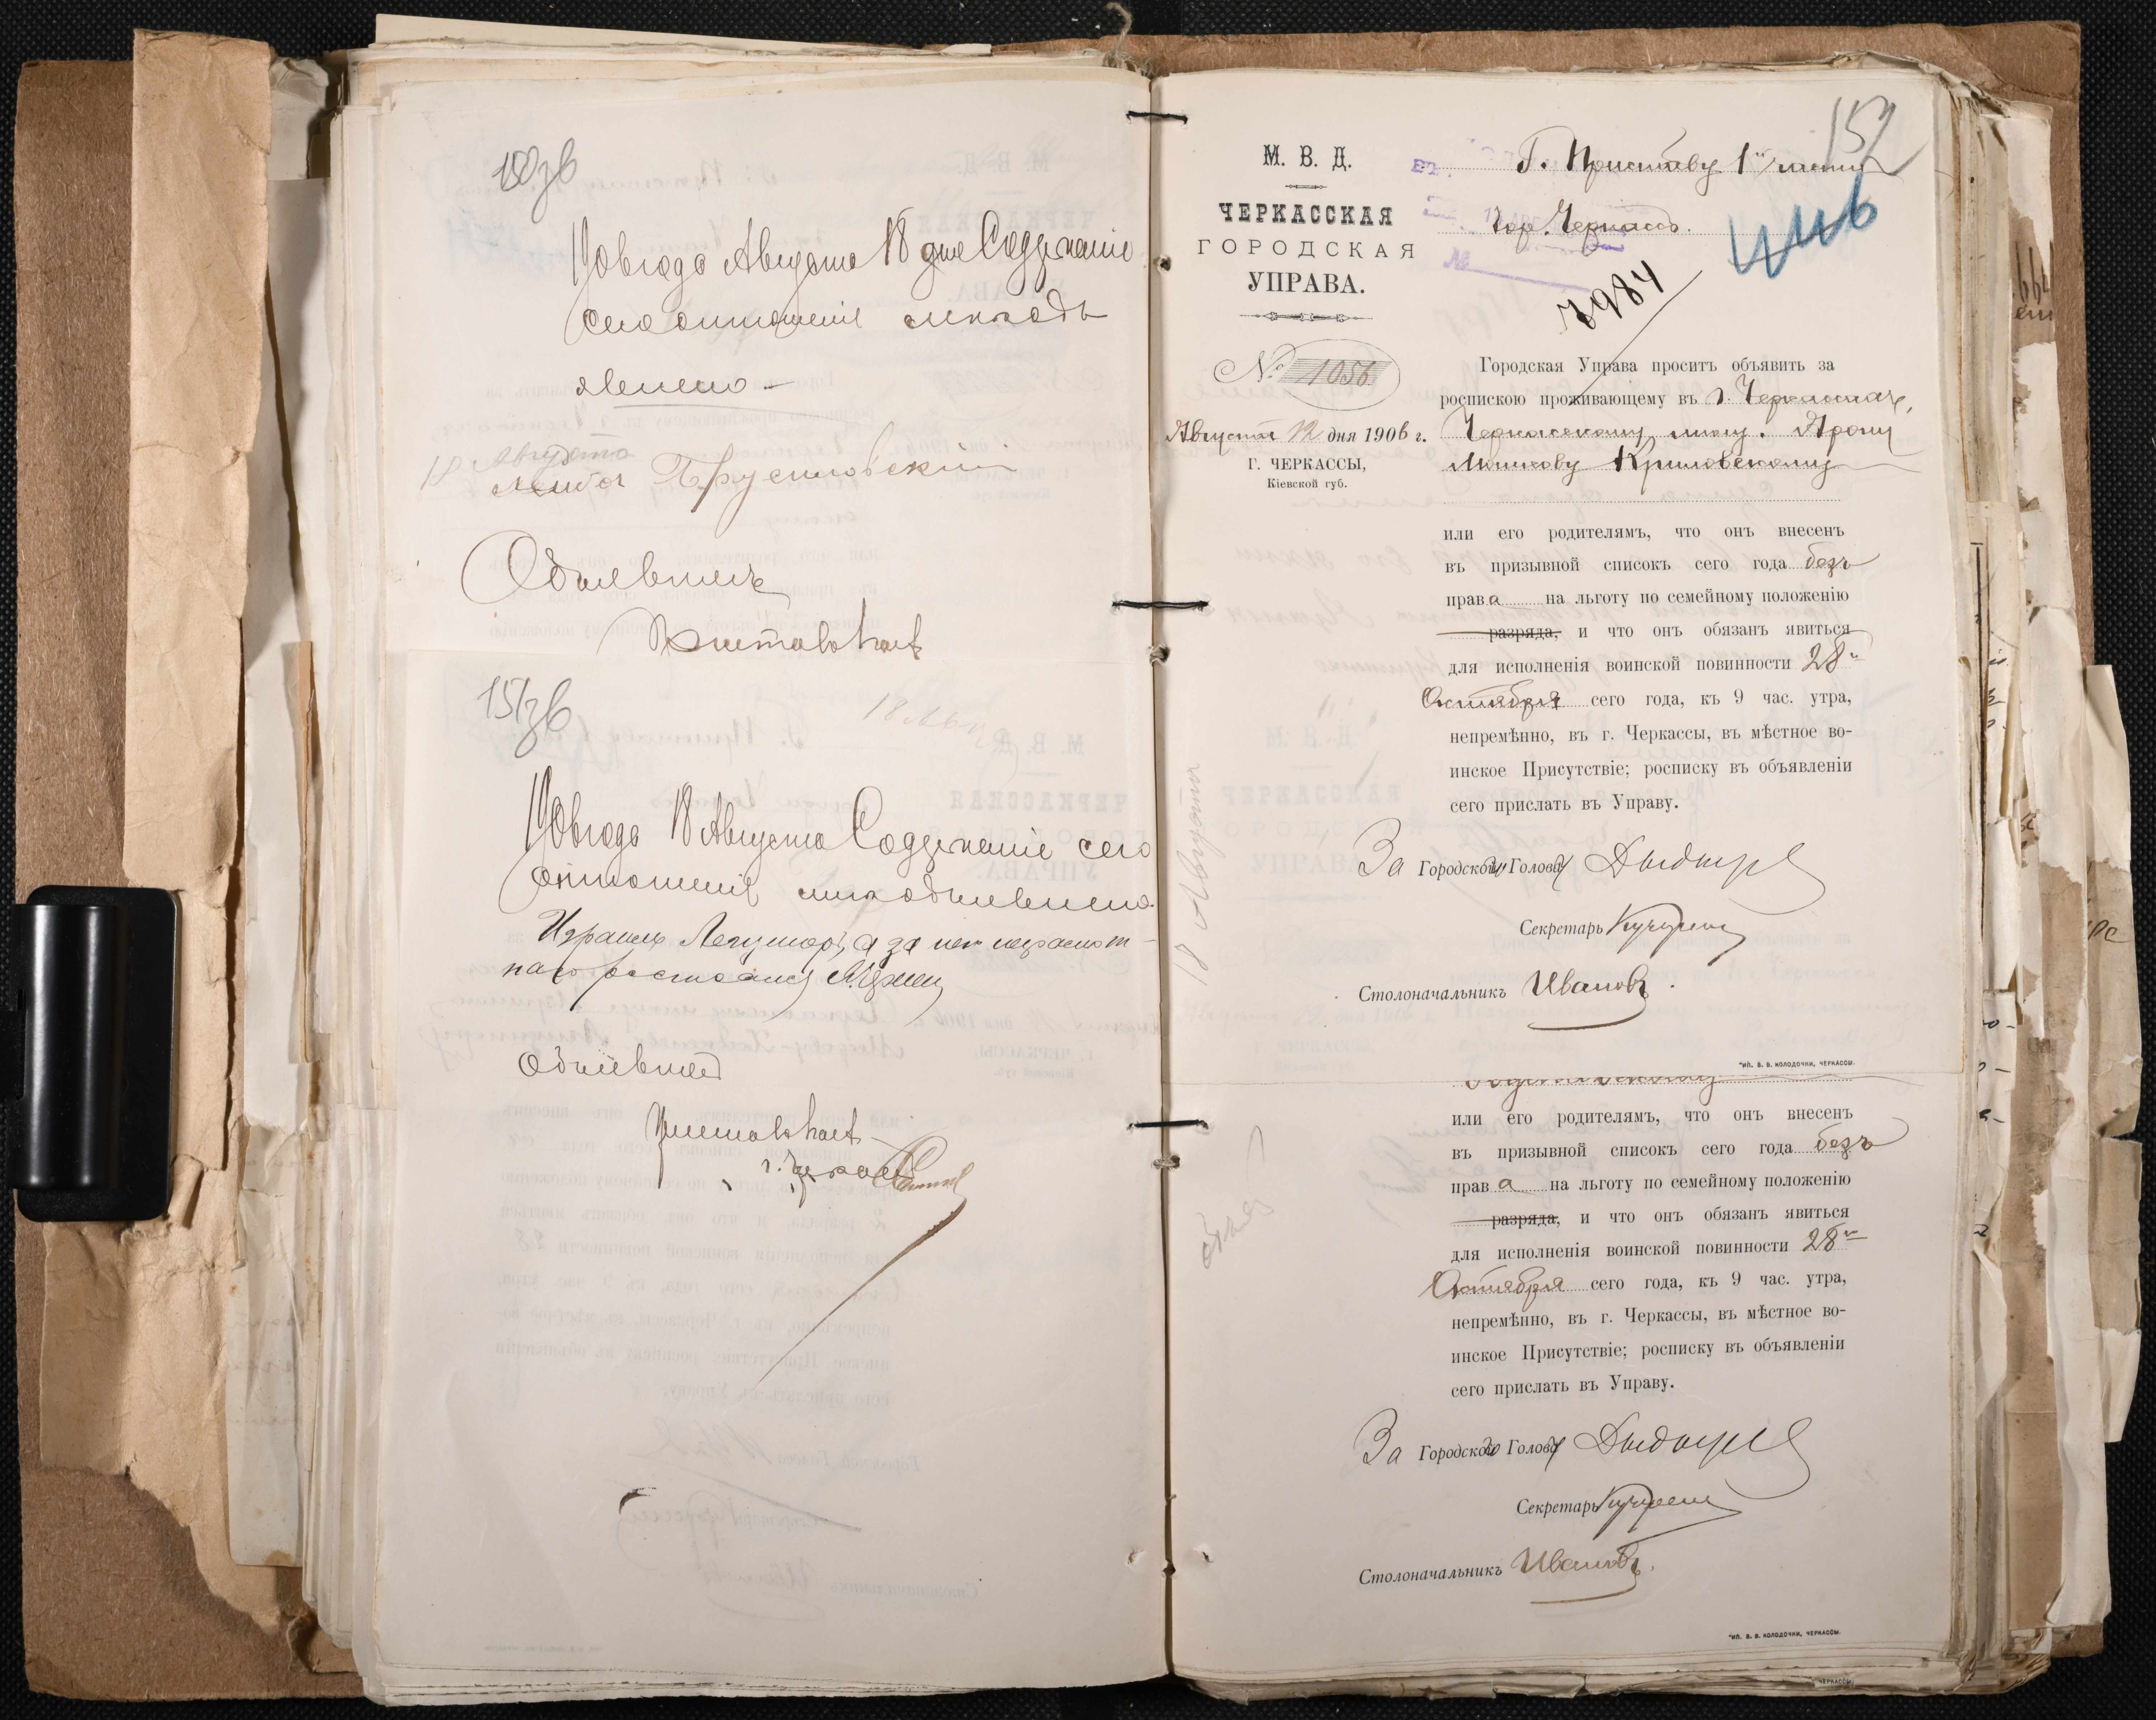 150зв
1906 года Августа 18 дня Содержаніе
сего отношенія мнѣ объ
явлено
18 Августа
Лейба Брусиловскій
Объявилъ
151зв
1906 года 18 Августа Содержаніе сего
отношенія мнѣ объявлено
Израиль а за него неграмот-
наго росписался
Объявилъ
г. Черкассъ
152
Г. Приставу 1й части
гор. Черкассъ.
7984
М. В. Д.
ЧЕРКАССКАЯ
ГОРОДСКАЯ
УПРАВА.
№ 1056
Августа 12 дня 1906 г.
Г. ЧЕРКАССЫ,
Кіевской губ.
Городская Управа проситъ объявить за
роспискою проживающему въ г. Черкассахъ,
Черкасскому мѣщ. Арону
Мошкову Криловскому
или его родителямъ, что онъ внесенъ
въ призывной списокъ сего года безъ
права на льготу по семейному положенію
разряда, и что онъ обязанъ явиться
для исполненія воинской повинности 28го
Октября сего года, къ 9 час. утра,
непремѣнно, въ г. Черкассы, въ мѣстное во-
инское Присутствіе; росписку въ объявленіи
сего прислать въ Управу.
За Городского Голову
Секретарь
Столоначальникъ Ивановъ
18 Августа
Тип. В. В. КОЛОДОЧКИ, ЧЕРКАССЫ.
или его родителямъ, что онъ внесенъ
въ призывной списокъ сего года безъ
права на льготу по семейному положенію
разряда, и что онъ обязанъ явиться
для исполненія воинской повинности 28го
Октября сего года, къ 9 час. утра,
непремѣнно, въ г. Черкассы, въ мѣстное во-
инское Присутствіе; росписку въ объявленіи
сего прислать въ Управу.
За Городского Голову
Секретарь
Столоначальникъ Ивановъ.
Тип. В. В. КОЛОДОЧКИ, ЧЕРКАССЫ.
ЧЕРКАССЫ